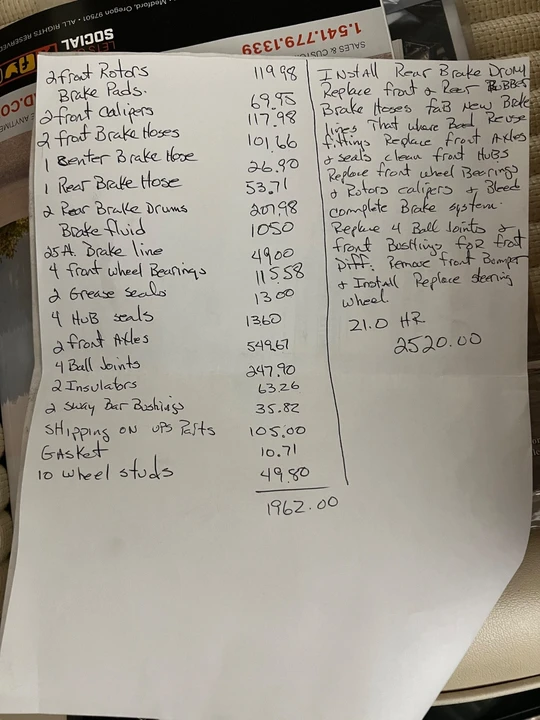 Medford, Oregon 97501 • ALL RIGHTS RESERVED
SOCIAL
1.541.779.1339
SALES & CUSTO
D.CO
2 front Rotors 119.98
Brake Pads. 69.95
2 front Calipers 117.98
2 front Brake Hoses 101.66
1 Center Brake Hose 26.90
1 Rear Brake Hose 53.71
2 Rear Brake Drums 207.98
Brake fluid 1050
25ft. Brake line 4900
4 front wheel Bearings 115.58
2 Grease seals 1300
4 HuB seals 1360
2 front Axles 549.67
4 Ball Joints 247.90
2 Insulators 63.26
2 sway Bar Bushings 35.82
SHipping ON UPS Parts 105.00
GAsket 10.71
10 wheel studs 49.80
1962.00
INstall Rear Brake Drums
Replace front & Rear RuBBer
Brake Hoses faB New Brake
lines That where Bad Reuse
fittings Replace front Axles
& seals clean front HuBs
Replace front wheel Bearings
& Rotors calipers & Bleed
complete Brake system.
Replace 4 Ball Joints &
front Bushings foR front
Diff. Remove front Bumper
& Install Replace steering
wheel.
21.0 HR
2520.00